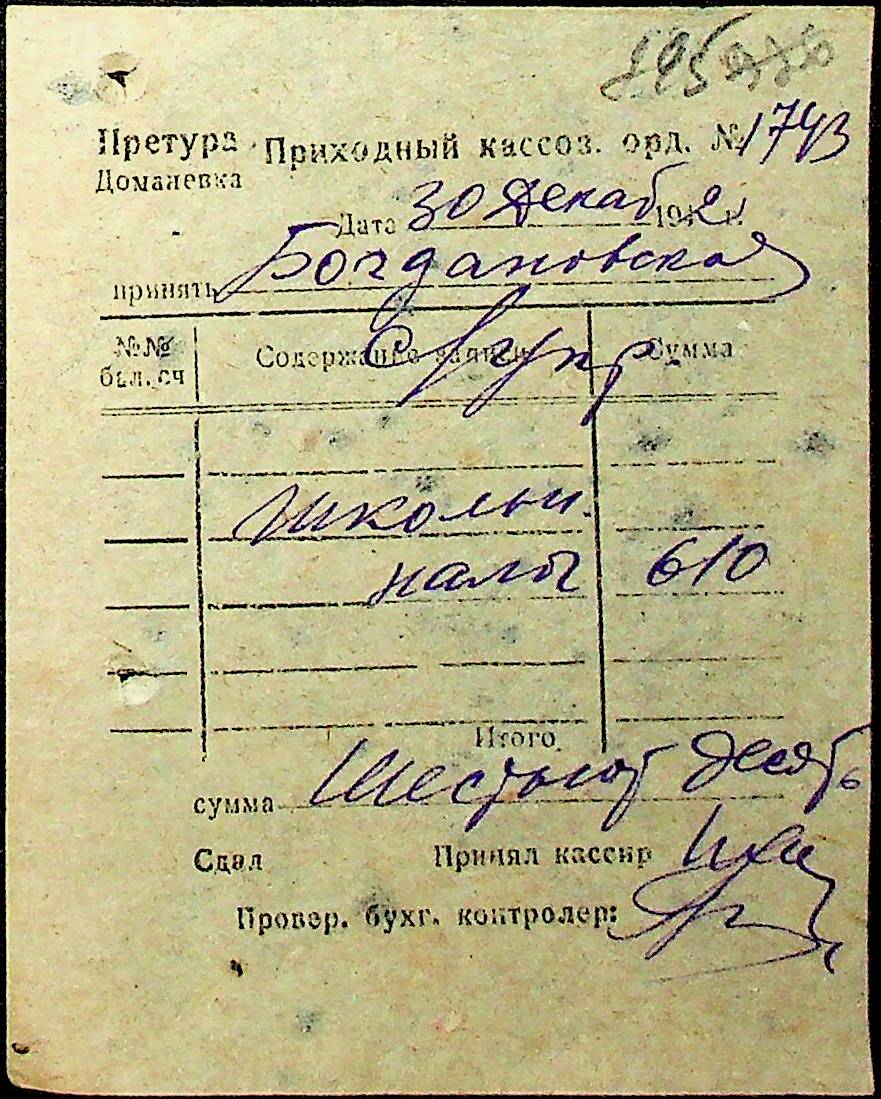 Претура Приходный кассов. орд. № 1743
Доманевка
Дата 30 Декаб 1942 г.
принять Богдановская
С/упр
№№ бал. сч Содержание записи Сумма
школьн.
налог 610
Итого
сумма Шестьсот десять
Сдал Принял кассир
Провер. бухг. контролер: